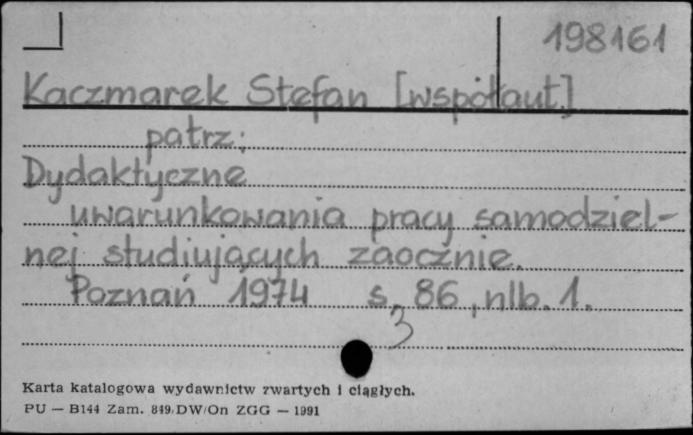 198161
Kaczmarek Stefan [współaut.]
patrz:
Dydaktyczne
uwarunkowania pracy samodziel-
nej studiujących zaocznie.
Poznań 1974 s. 86, nlb. 1.
3
Karta katalogowa wydawnictw zwartych i ciągłych.
PU — B144 Zam. 849/DW/On ZGG — 1991